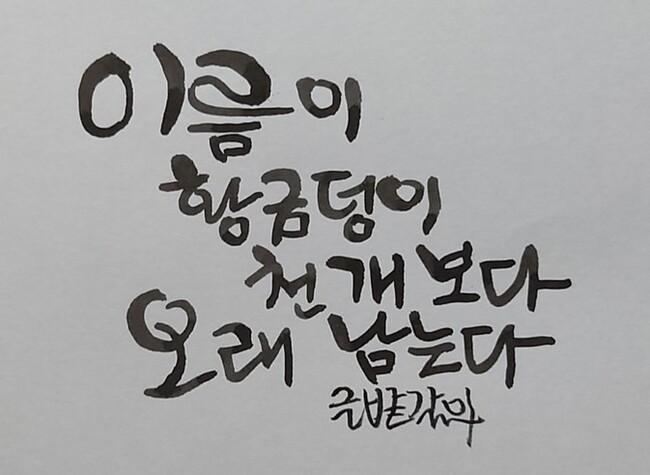 이름이
황금덩이
천개 보다
오래 남는다